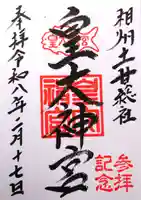 相州土甘総社
皇大神宮
奉拝令和八年二月十七日
参拝
記念